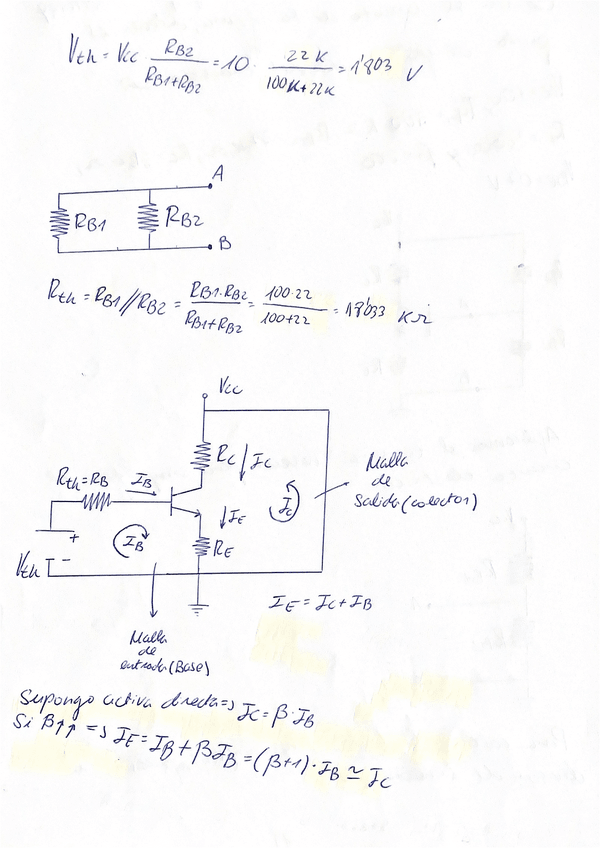 Vth = Vcc RB2 / (RB1+RB2) = 10 · 22K / (100K+22K) = 1'803 V
A
RB1 RB2
B
Rth = RB1//RB2 = RB1·RB2 / (RB1+RB2) = 100·22 / (100+22) = 18'033 KΩ
Vcc
RC IC
Rth=RB IB
Malla
de
Salida (colector)
IC
IE
+
IB
RE
Vth -
IE = IC + IB
Malla
de
entrada (Base)
Supongo activa directa => IC = β·IB
Si β↑↑ => IE = IB + βIB = (β+1)·IB ≃ IC